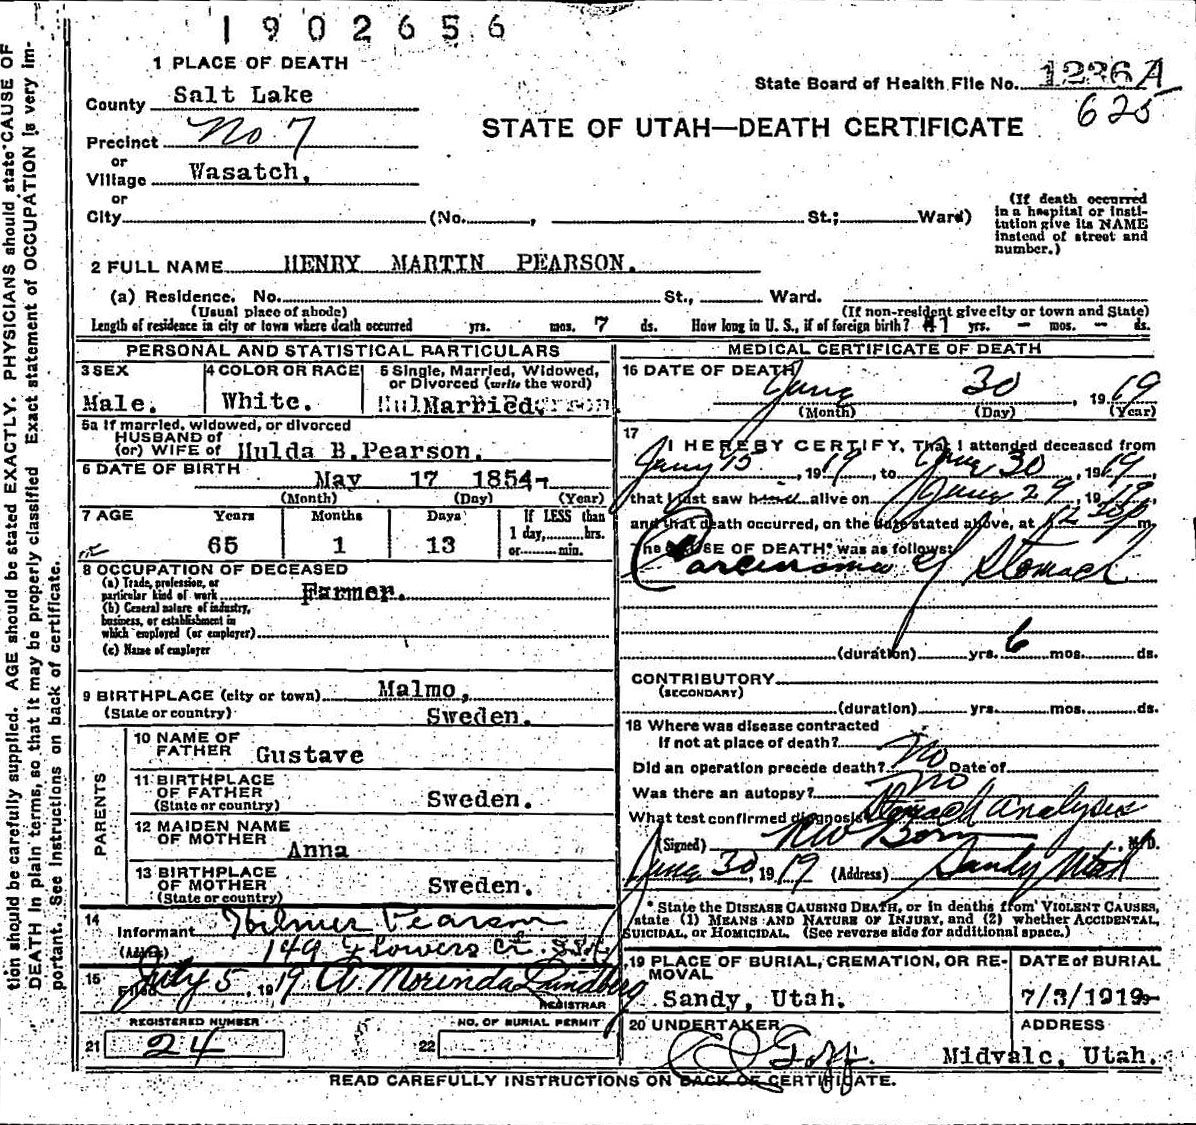 1902656
1 PLACE OF DEATH
State Board of Health File No. 1236A
625
County Salt Lake
STATE OF UTAH—DEATH CERTIFICATE
Precinct No 7
or
Village Wasatch,
or
City (No. , St.; Ward)
(If death occurred
in a hospital or insti-
tution give its NAME
instead of street and
number.)
2 FULL NAME HENRY MARTIN PEARSON.
(a) Residence. No. St., Ward.
(Usual place of abode) (If non-resident give city or town and State)
Length of residence in city or town where death occurred yrs. mos. 7 ds. How long in U. S., if of foreign birth? yrs. — mos. — ds.
PERSONAL AND STATISTICAL PARTICULARS
3 SEX 4 COLOR OR RACE 5 Single, Married, Widowed,
or Divorced (write the word)
Male. White. Married.
5a If married, widowed, or divorced
HUSBAND of
(or) WIFE of Hulda B.Pearson.
6 DATE OF BIRTH
May 17 1854
(Month) (Day) (Year)
7 AGE Years Months Days If LESS than
1 day, hrs.
or min.
65 1 13
8 OCCUPATION OF DECEASED
(a) Trade, profession, or
particular kind of work Farmer.
(b) General nature of industry,
business, or establishment in
which employed (or employer)
(c) Name of employer
9 BIRTHPLACE (city or town) Malmo,
(State or country) Sweden.
PARENTS
10 NAME OF
FATHER Gustave
11 BIRTHPLACE
OF FATHER
(State or country) Sweden.
12 MAIDEN NAME
OF MOTHER
Anna
13 BIRTHPLACE
OF MOTHER
(State or country) Sweden.
14
Informant Hilmer Pearson
(Address) 149 Flowers Ct. S.L.C.
15
Filed July 5, 1919 A Morinda Lundberg
REGISTRAR
REGISTERED NUMBER NO. OF BURIAL PERMIT
21 24 22
MEDICAL CERTIFICATE OF DEATH
16 DATE OF DEATH
June 30, 1919
(Month) (Day) (Year)
17
I HEREBY CERTIFY, That I attended deceased from
Jany 15, 1919, to June 30, 1919,
that I last saw him alive on June 29, 1919,
and that death occurred, on the date stated above, at 12 30 P m.
The CAUSE OF DEATH* was as follows:
Carcinoma of Stomach
(duration) yrs. 6 mos. ds.
CONTRIBUTORY
(SECONDARY)
(duration) yrs. mos. ds.
18 Where was disease contracted
If not at place of death?
Did an operation precede death? No Date of
Was there an autopsy? No
What test confirmed diagnosis Stomach Analysis
(Signed) RW Born, M.D.
June 30, 1919 (Address) Sandy Utah
* State the DISEASE CAUSING DEATH, or in deaths from VIOLENT CAUSES,
state (1) MEANS AND NATURE OF INJURY, and (2) whether ACCIDENTAL,
SUICIDAL, or HOMICIDAL. (See reverse side for additional space.)
19 PLACE OF BURIAL, CREMATION, OR RE-
MOVAL
Sandy, Utah.
DATE OF BURIAL
7/3/1919
20 UNDERTAKER
Goff.
ADDRESS
Midvale, Utah.
READ CAREFULLY INSTRUCTIONS ON BACK OF CERTIFICATE.
tion should be carefully supplied. AGE should be stated EXACTLY. PHYSICIANS should state CAUSE OF
DEATH in plain terms, so that it may be properly classified. Exact statement of OCCUPATION is very im-
portant. See Instructions on back of certificate.